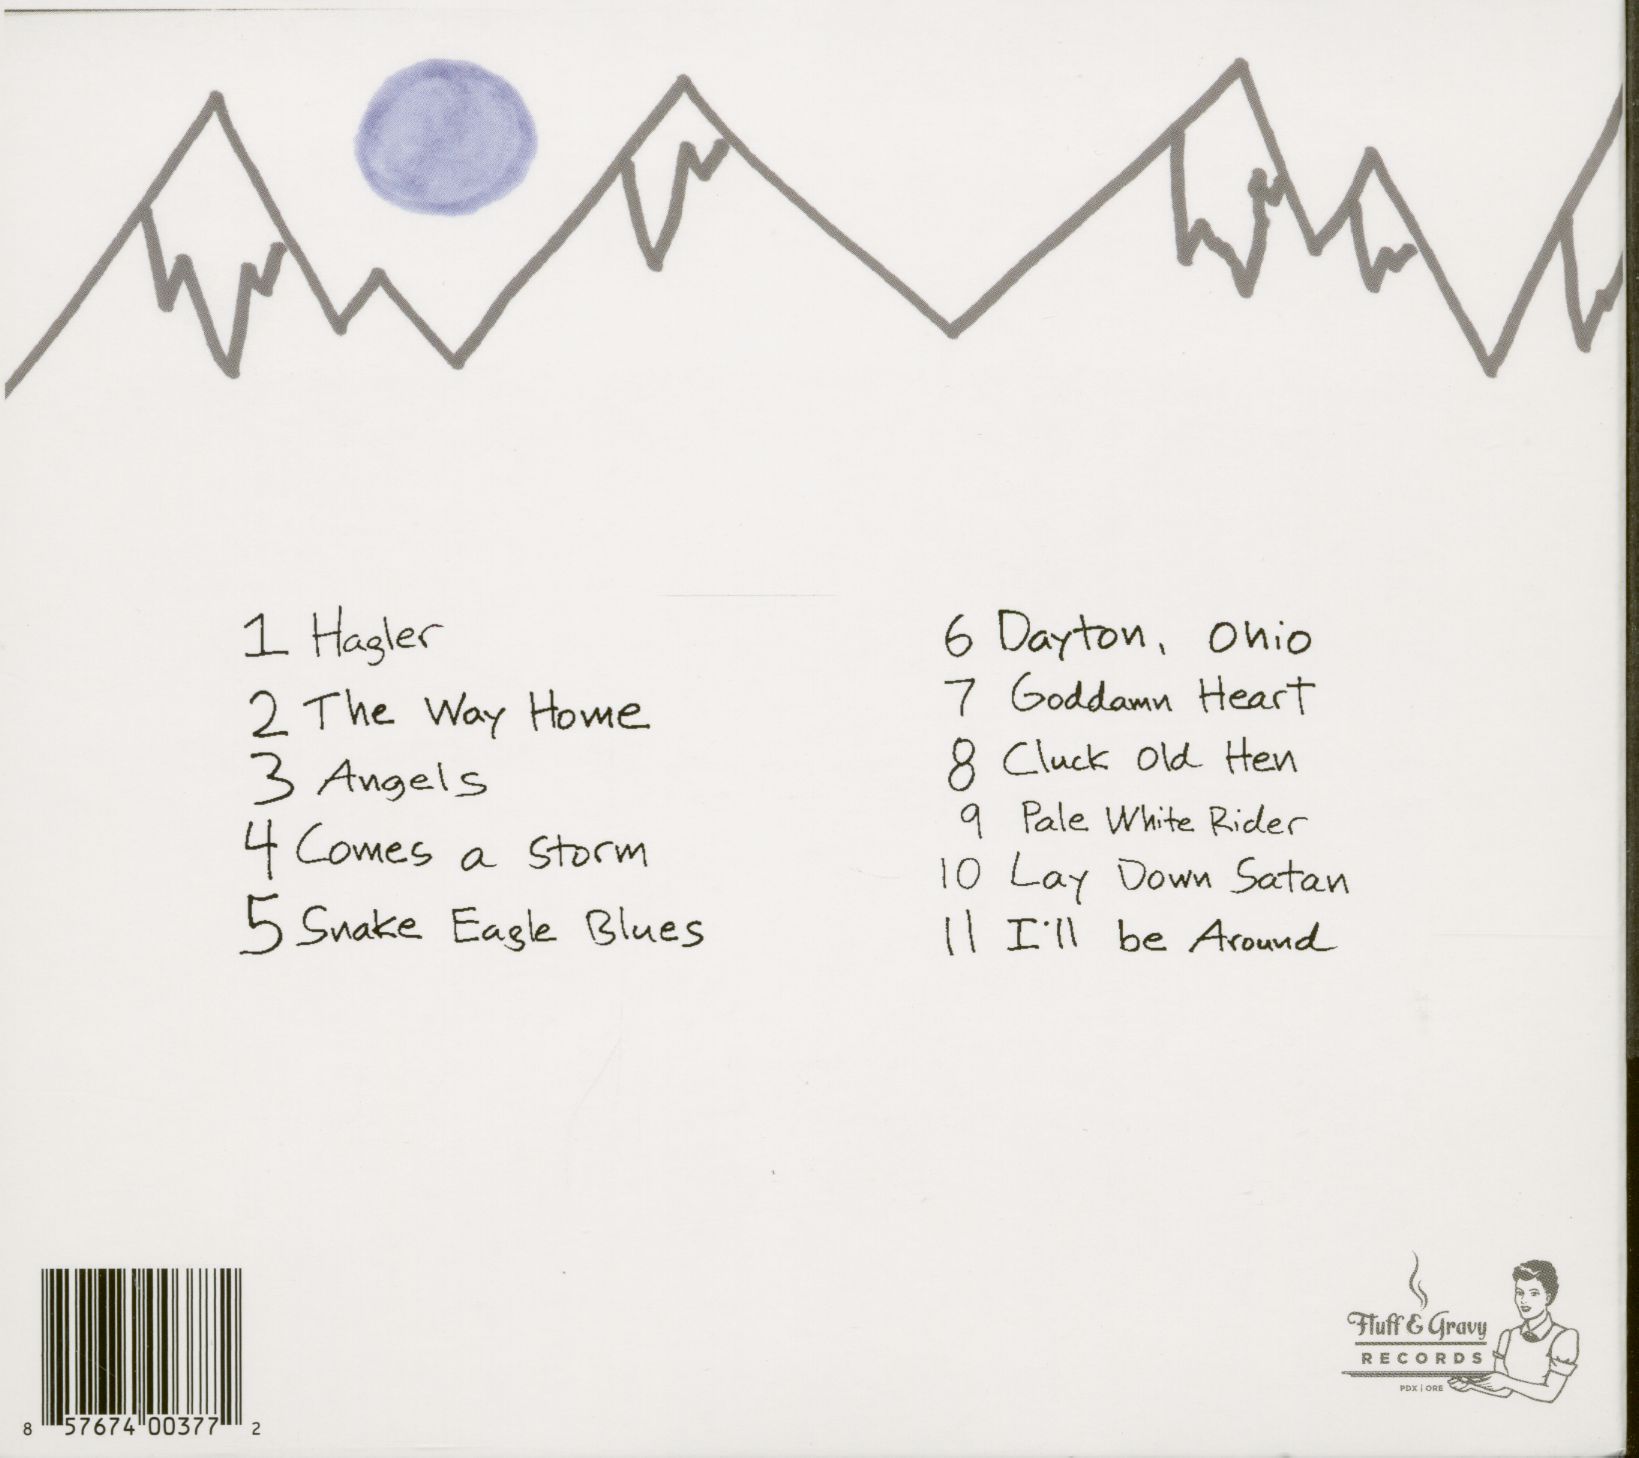 1 Hagler
2 The Way Home
3 Angels
4 Comes a Storm
5 Snake Eagle Blues
6 Dayton, Ohio
7 Goddamn Heart
8 Cluck Old Hen
9 Pale White Rider
10 Lay Down Satan
11 I'll be Around
8 57674 00377 2
Fluff & Gravy
RECORDS
PDX | ORE